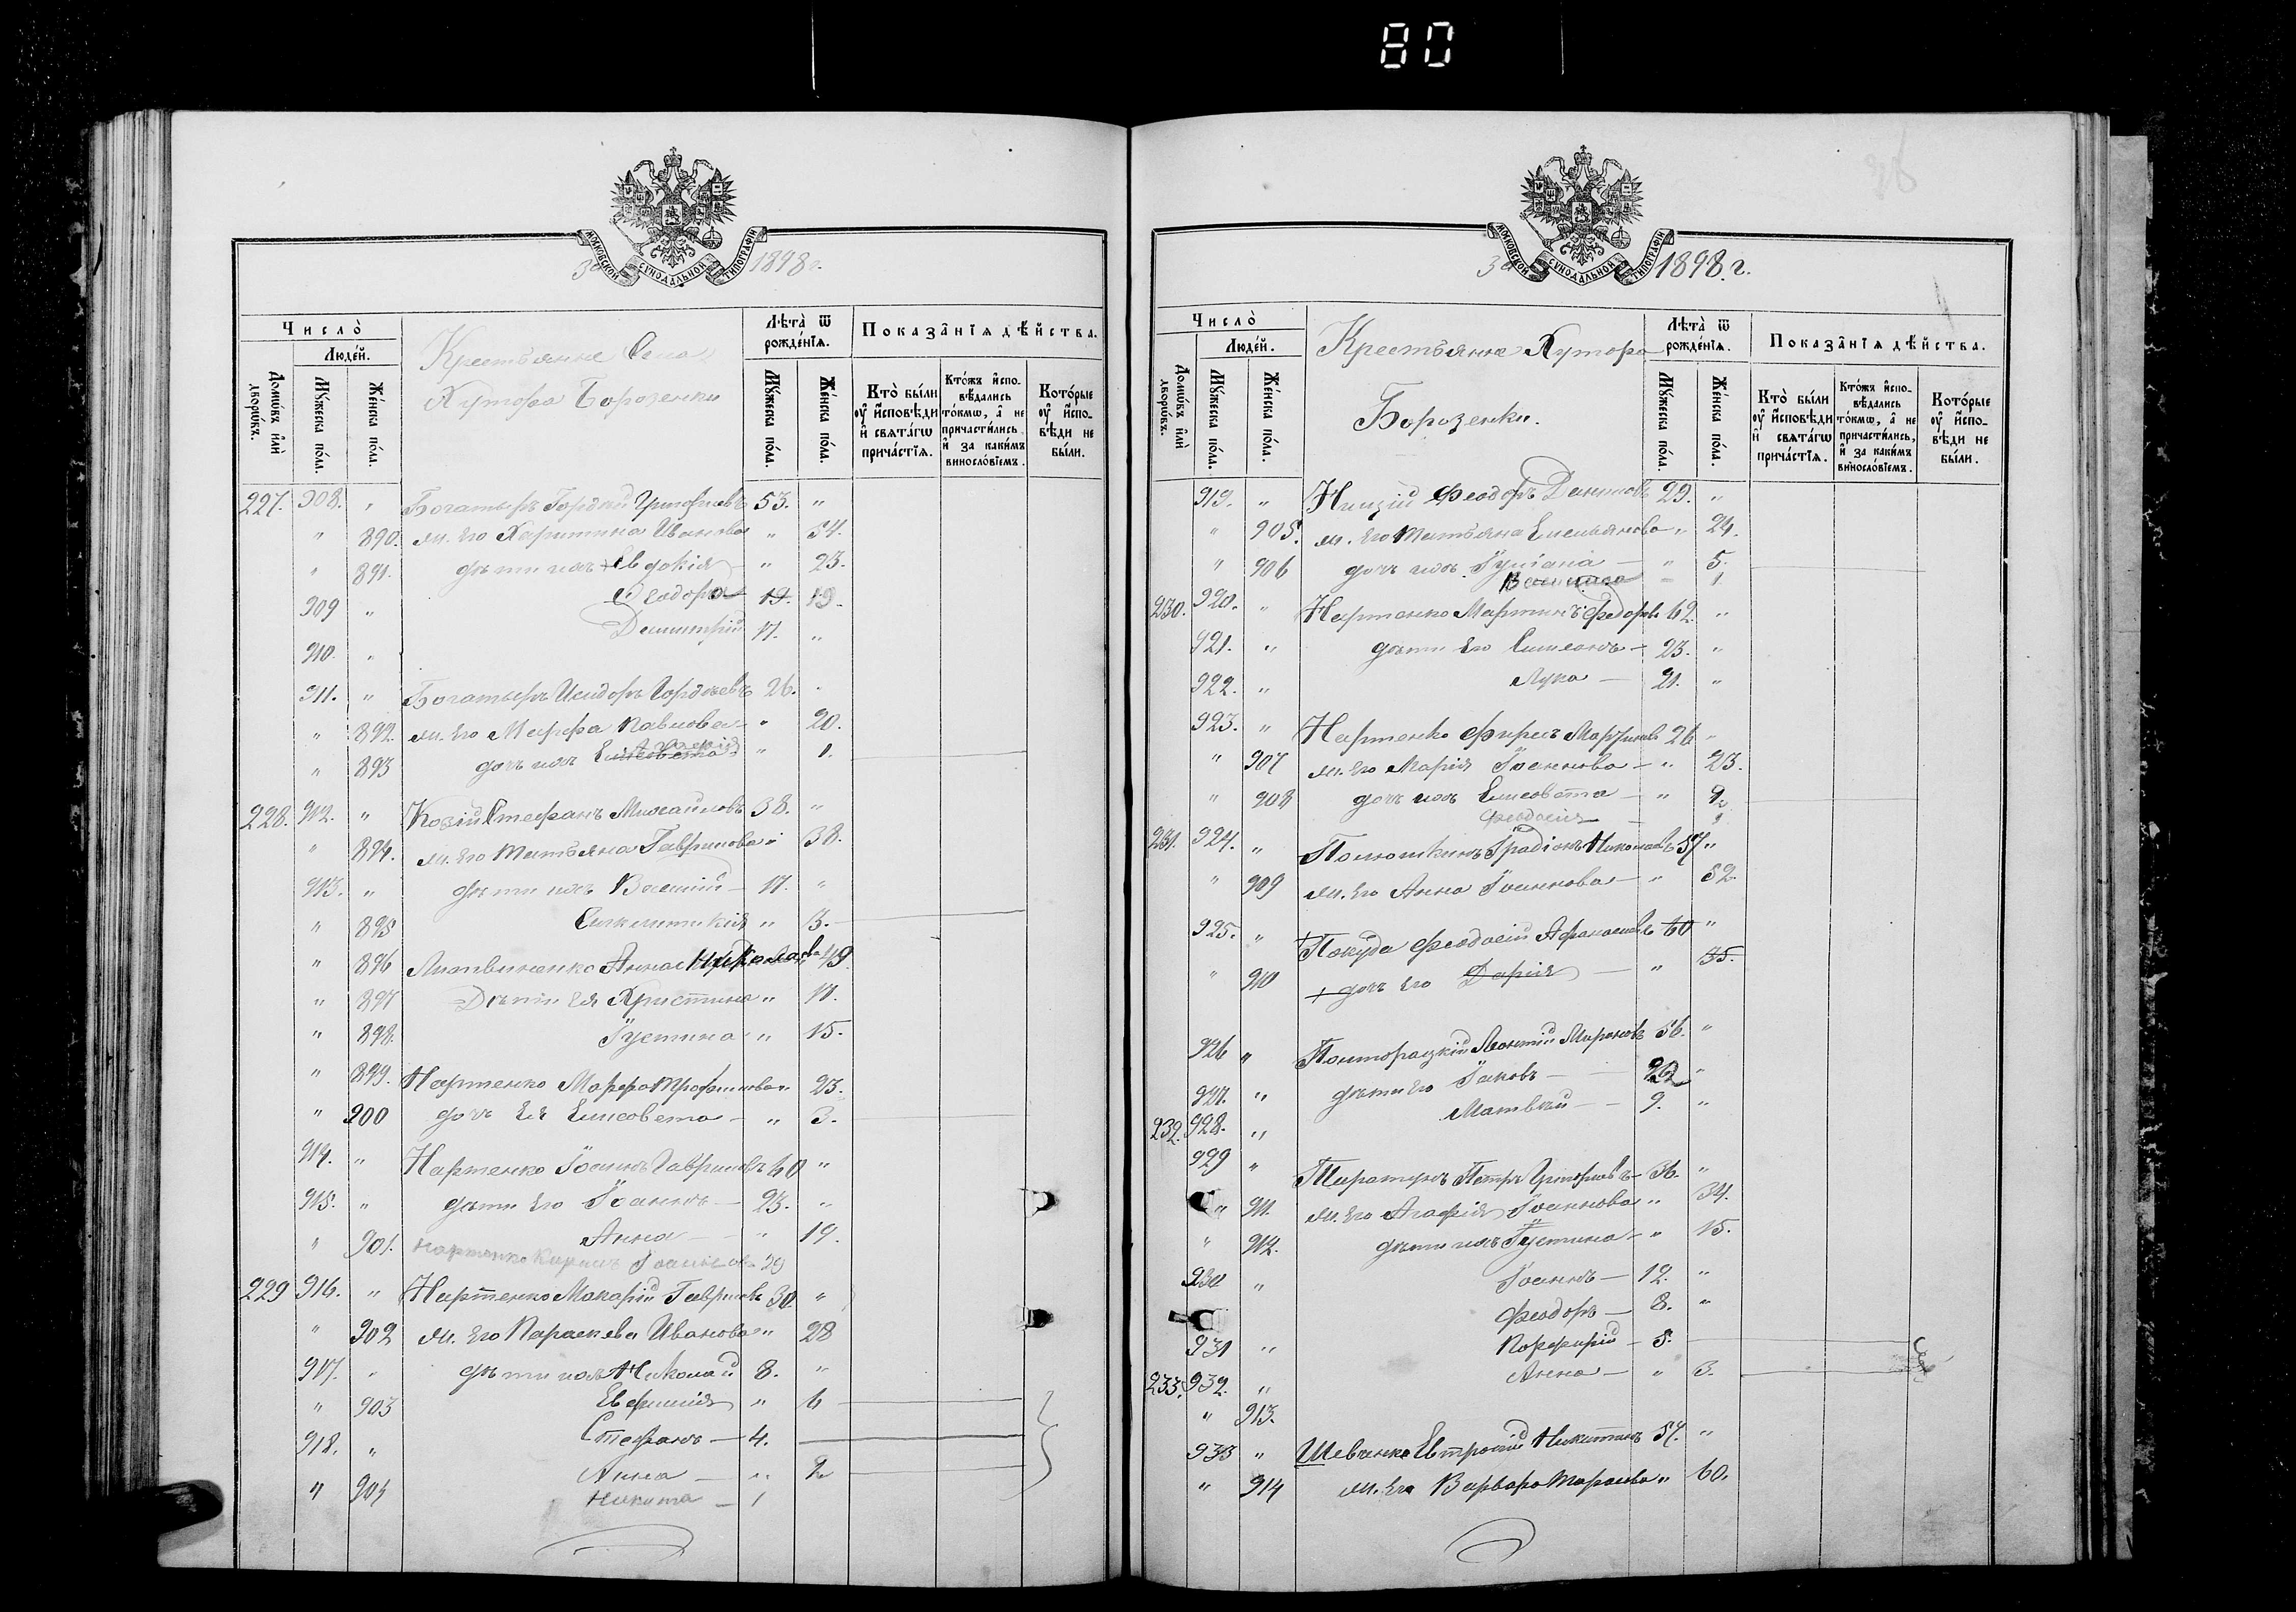 80
МОСКОВСКОЙ СУНОДАЛЬНОЙ ТИПОГРАФІИ
За 1898 г.
Число̀
Людей.
Домѡвъ и҆лѝ дворѡвъ.
Мꙋжеска пола.
Женска пола.
Крестьяне Села
Хутора Борозенки
Лѣта̀ ѿ рожденїѧ.
Мꙋжеска пола.
Женска пола.
Показанїѧ дѣйства.
Кто̀ были оу҆ и҆сповѣди и҆ свѧтагѡ причастїѧ.
Ктожъ и҆сповѣдались токмѡ, а҆ не причастились и҆ за какимъ винословїемъ.
Которые оу҆ и҆сповѣди не были.
227. 908. " Богатырь Гордій Григорьевъ 53. "
" 890. ж. Его Харитина Иванова " 54.
" 891. дѣти ихъ Евдокія " 23.
909 " Ѳеодора 19. 19.
Димитрій 17. "
910. "
911. " Богатырь Исидоръ Гордѣевъ 26. "
" 892. ж. Его Марфа Павлова " 20.
" 893 дочь ихъ Елисовета " 1.
228. 912. " Козій Стефанъ Михаиловъ 38. "
" 894. ж. Его Татьяна Гаврилова " 38.
913. " дѣти ихъ Василій — 17. "
" 895 Синклитикія " 13.
" 896 Литвиненко Анна Николаева 49
" 897 Дѣти Ея Христина " 17.
" 898. Іустина " 15.
" 899. Нартенко Марфа Трофимова " 23.
" 900 дочь Ея Елисовета — " 3.
914. " Нартенко Іоаннъ Гавриловъ 60 "
915. " дѣти Его Іоаннъ — 23. "
" 901. Анна — " 19.
Нартенко Кирилъ Іоанновъ 29
229 916. " Нартенко Макарій Гавриловъ 30. "
" 902 ж. Его Параскева Иванова " 28
917. " дѣти ихъ Николай 8. "
" 903 Евфимія " 6
918. " Стефанъ — 4.
" 904 Анна — " 2
Никита — 1
МОСКОВСКОЙ СУНОДАЛЬНОЙ ТИПОГРАФІИ
За 1898. г.
Число̀
Людей.
Домѡвъ и҆лѝ дворѡвъ.
Мꙋжеска пола.
Женска пола.
Крестьяне Хутора
Борозенки.
Лѣта̀ ѿ рожденїѧ.
Мꙋжеска пола.
Женска пола.
Показанїѧ дѣйства.
Кто̀ были оу҆ и҆сповѣди и҆ свѧтагѡ причастїѧ.
Ктожъ и҆сповѣдались токмѡ, а҆ не причастились, и҆ за какимъ винословїемъ.
Которые оу҆ и҆сповѣди не были.
919. " Феодоръ Данииловъ 29. "
" 905. ж. Его Татьяна Емельянова " 24.
" 906 дочь ихъ Іуліана — " 5.
" 1
230. 920. " Нартенко Мартинъ Федоровъ 62. "
921. " дѣти Его Симеонъ — 23. "
922. " Лука — 21. "
923. " Нартенко Фирсъ Мартиновъ 26 "
" 907 ж. Его Марія Іоаннова — " 23.
" 908 дочь ихъ Елисовета — " 2
Феодосія —
231. 924. " Иродіонъ Николаевъ 57 "
" 909 ж. Его Анна Іоаннова — " 52
925. " Покуда Феодосій Афанасіевъ 60 "
" 910 дочь Его Дарія — " 35.
926 " Полторацкій Леонтій Мироновъ 56. "
927. " дѣти Его Іаковъ — "
232. 928. " Матвѣй — 9. "
929 " Петръ Григорьевъ — 36. "
" 911. ж. Его Агафія Іоаннова " 34.
" 912. дѣти ихъ Іустина — " 15.
930 " Іоаннъ — 12. "
Феодоръ — 8. "
931 " Порфирій — 5.
233. 932. " Анна — " 3.
" 913.
933 " Шевченко Евтропій Никитинъ 57. "
" 914 ж. Его Варвара Тарасова " 60.